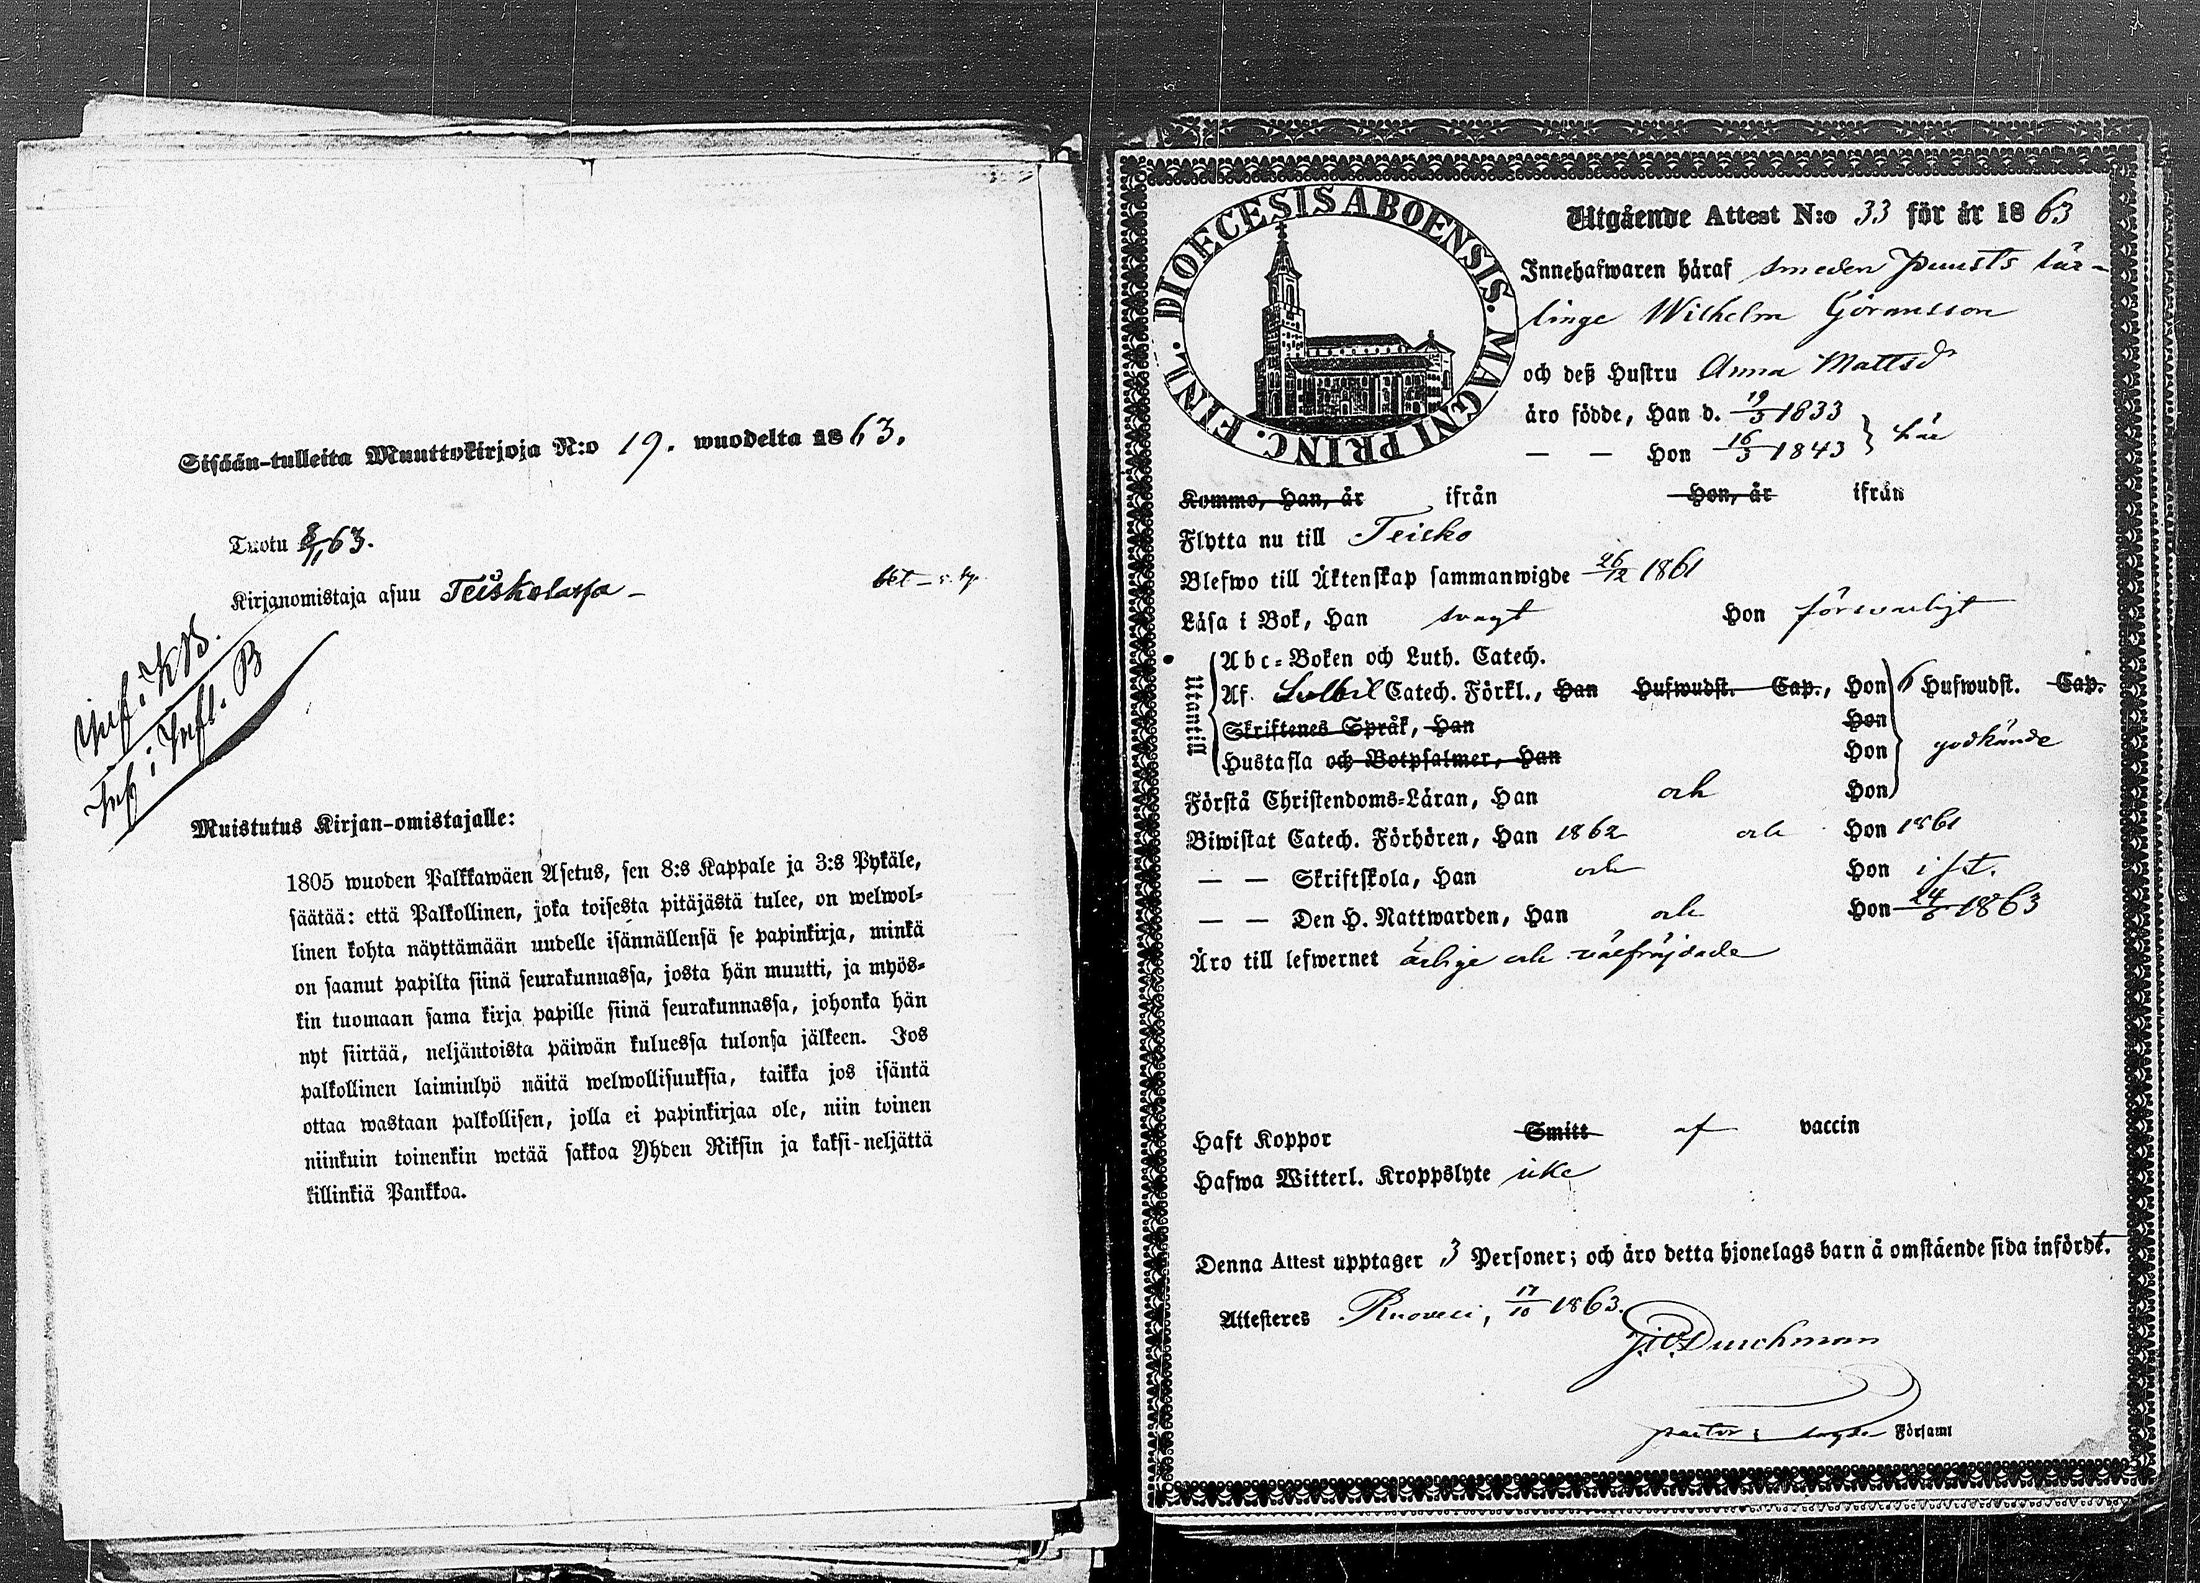 Sisään-tulleita Muuttokirjoja N:o 19. wuodelta 1863.
Tuotu 8/11 63.
Kirjanomistaja asuu Teiskolassa
Inf. i KB.
Inf. i Infl. B
Muistutus Kirjan-omistajalle:
1805 wuoden Palkkawäen Asetus, sen 8:s Kappale ja 3:s Pykäle,
säätää: että Palkollinen, joka toisesta pitäjästä tulee, on welwol-
linen kohta näyttämään uudelle isännällensä se papinkirja, minkä
on saanut papilta siinä seurakunnassa, josta hän muutti, ja myös-
kin tuomaan sama kirja papille siinä seurakunnassa, johonka hän
nyt siirtää, neljäntoista päiwän kuluessa tulonsa jälkeen. Jos
palkollinen laiminlyö näitä welwollisuuksia, taikka jos isäntä
ottaa wastaan palkollisen, jolla ei papinkirjaa ole, niin toinen
niinkuin toinenkin wetää sakkoa Yhden Riksin ja kaksi-neljättä
killinkiä Pankkoa.
DIOECESIS ABOENSIS. MAGNI PRINC. FINL.
Utgående Attest N:o 33 för år 1863
Innehafwaren häraf smeden Puusts lär-
linge Wilhelm Göransson
och deß Hustru Anna Mattsdr
äro födde, Han d. 19/3 1833
— — Hon 16/3 1843 } här
Kommo, Han, år ifrån Hon, år ifrån
Flytta nu till Teisko
Blefwo till Äktenskap sammanwigde 26/12 1861
Läsa i Bok, Han svagt Hon försvarligt
Utantill
Abc-Boken och Luth. Catech.
Af Catech. Förkl., Han Hufwudst. Cap., Hon 6 Hufwudst. Cap.
Skriftenes Språk, Han Hon
Hustafla och Botpsalmer, Han Hon godkände
Förstå Christendoms-Läran, Han och Hon
Biwistat Catech. Förhören, Han 1862 och Hon 1861
— — Skriftskola, Han och Hon i st.
— — Den H. Nattwarden, Han och Hon 24/6 1863
Äro till lefwernet ärlige och välfräjdade
Haft Koppor Smitt af vaccin
Hafwa Witterl. Kroppslyte icke
Denna Attest upptager 3 Personer; och äro detta hjonelags barn å omstående sida infördt.
Attesteres Ruovesi, 17/10 1863.
J. W. Durchman
pastor i Församl